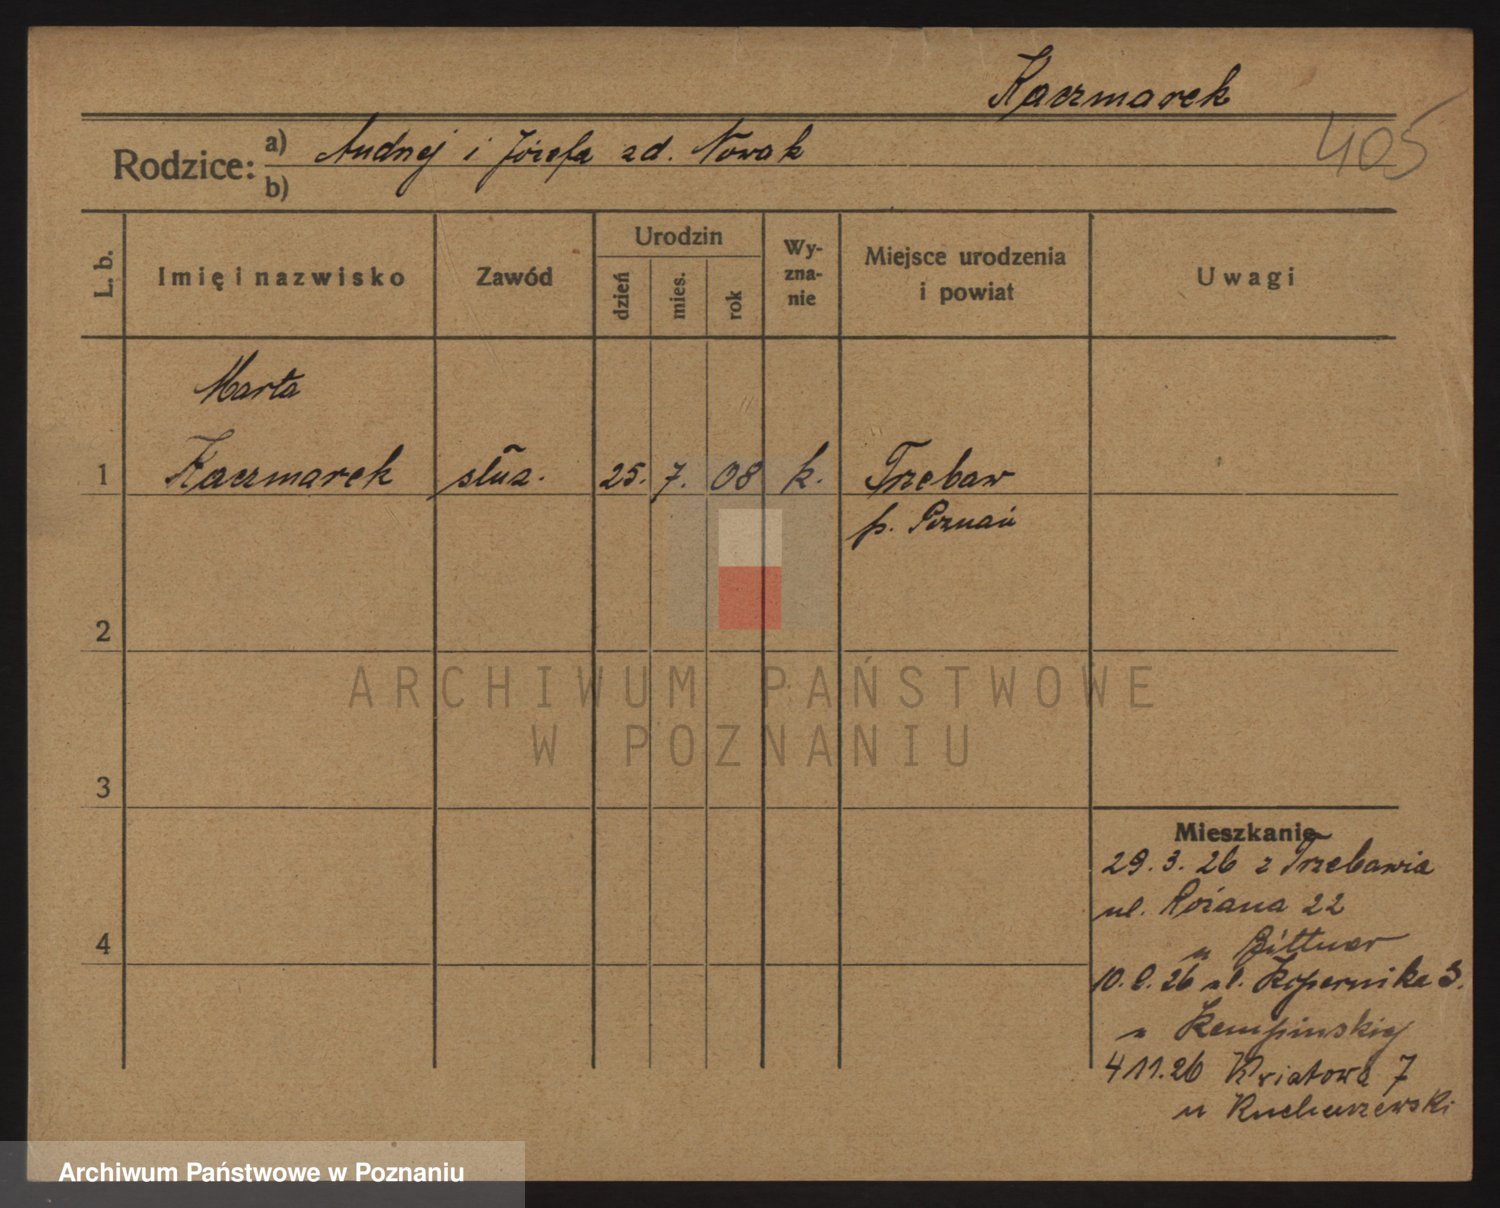 Kaczmarek
405
Rodzice: a) Andrzej i Józefa zd. Nowak
b)
L. b.
Imię i nazwisko
Zawód
Urodzin
dzień
mies.
rok
Wy-
zna-
nie
Miejsce urodzenia
i powiat
Uwagi
Marta
1 Kaczmarek służ. 25. 7. 08 k. Trzebaw
p. Poznań
2
ARCHIWUM PAŃSTWOWE
W POZNANIU
3
Mieszkanie
29. 3. 26 z Trzebawia
ul. Różana 22
u Bittner
4
10. 26 ul. Kopernika 3.
u Kempińskiej
4 11. 26 Kwiatowa 7
u
Archiwum Państwowe w Poznaniu